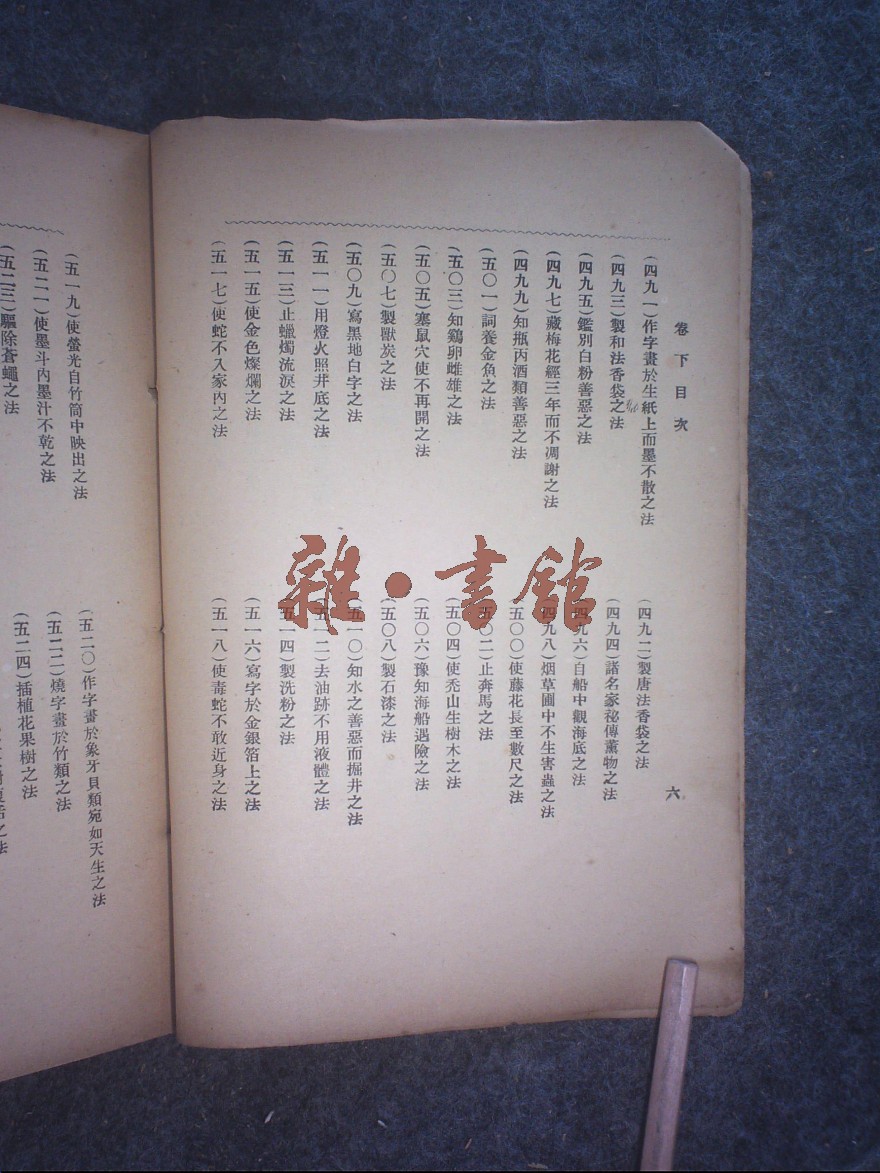 卷下目次
六
(四九一)作字畫於生紙上而墨不散之法
(四九二)製唐法香袋之法
(四九三)製和法香袋之法
(四九四)諸名家祕傳薰物之法
(四九五)鑑別白粉善惡之法
(四九六)自船中觀海底之法
(四九七)藏梅花經三年而不凋謝之法
(四九八)烟草圃中不生害蟲之法
(四九九)知瓶丙酒類善惡之法
(五〇〇)使藤花長至數尺之法
(五〇一)飼養金魚之法
(五〇二)止奔馬之法
(五〇三)知鷄卵雌雄之法
(五〇四)使禿山生樹木之法
(五〇五)塞鼠穴使不再開之法
(五〇六)豫知海船遇險之法
(五〇七)製獸炭之法
(五〇八)製石漆之法
(五〇九)寫黑地白字之法
(五一〇)知水之善惡而掘井之法
(五一一)用燈火照井底之法
(五一二)去油跡不用液體之法
(五一三)止蠟燭流淚之法
(五一四)製洗粉之法
(五一五)使金色燦爛之法
(五一六)寫字於金銀箔上之法
(五一七)使蛇不入家內之法
(五一八)使毒蛇不敢近身之法
(五一九)使螢光自竹筒中映出之法
(五二〇)作字畫於象牙貝類宛如天生之法
(五二一)使墨斗內墨汁不乾之法
(五二二)燒字畫於竹類之法
(五二三)驅除蒼蠅之法
(五二四)插植花果樹之法
雜·書館